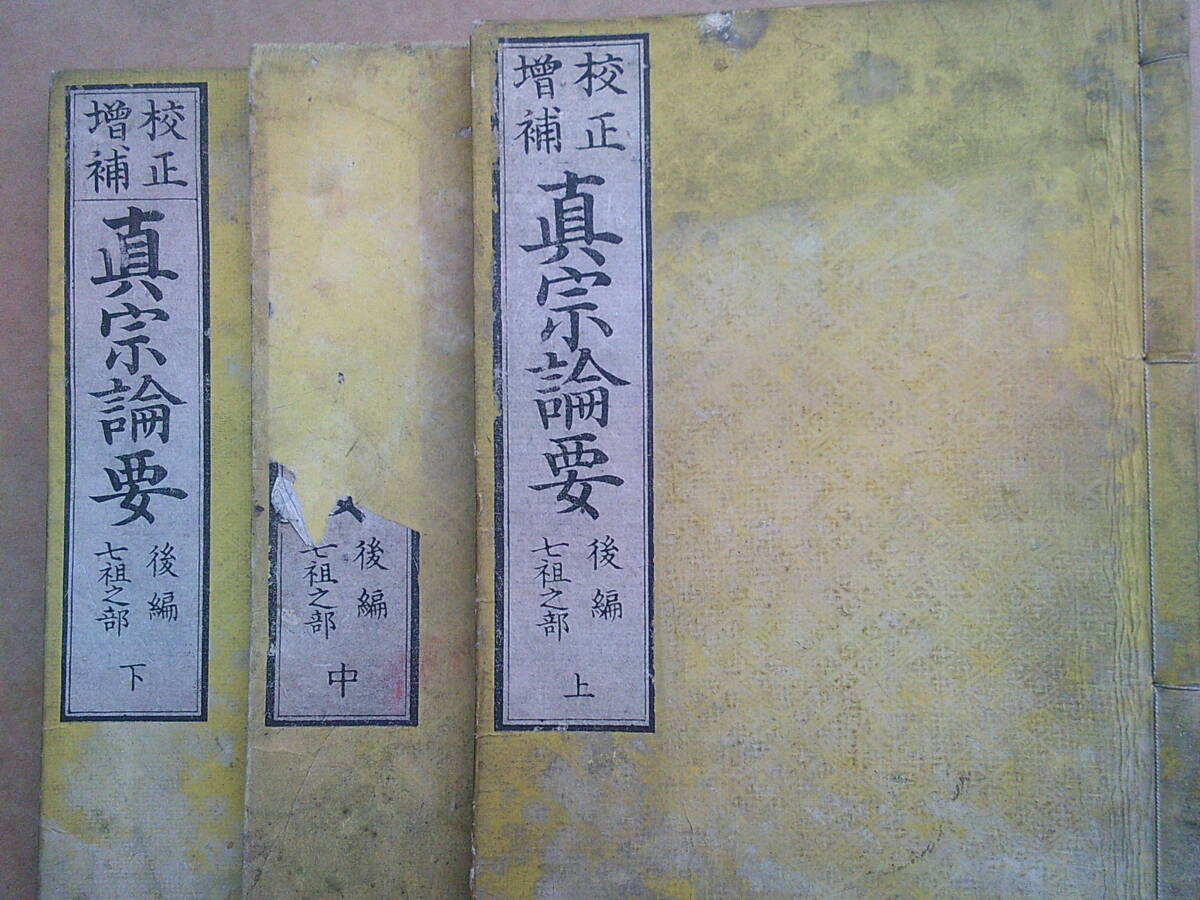 校正
增補
真宗論要
後編
七祖之部
上
後編
七祖之部
中
校正
增補
真宗論要
後編
七祖之部
下